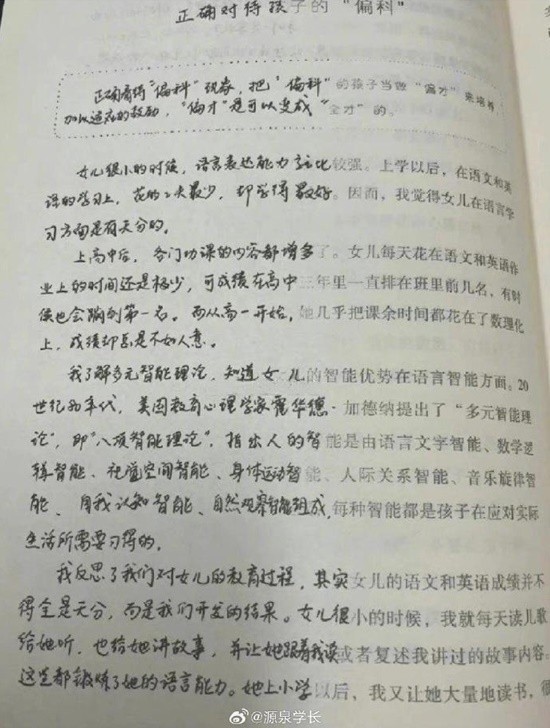 正确对待孩子的“偏科”
正确看待“偏科”现象，把“偏科”的孩子当做“偏才”来培养，
加以适应的鼓励，“偏才”是可以变成“全才”的。
女儿很小的时候，语言表达能力就比较强。上学以后，在语文和英
语的学习上，花的工夫最少，却学得最好。因而，我觉得女儿在语言学
习方面是有天分的。
上高中后，各门功课的内容都增多了。女儿每天花在语文和英语作
业上的时间还是极少，可成绩在高中三年里一直排在班里前几名，有时
候也会蹦到第一名。而从高一开始，她几乎把课余时间都花在了数理化
上，成绩却总是不如人意。
我了解多元智能理论，知道女儿的智能优势在语言智能方面。20
世纪80年代，美国教育心理学家霍华德·加德纳提出了“多元智能理
论”，即“八项智能理论”，指出人的智能是由语言文字智能、数学逻
辑智能、视觉空间智能、身体运动智能、人际关系智能、音乐旋律智
能、自我认知智能、自然观察智能组成，每种智能都是孩子在应对实际
生活所需要习得的。
我反思了我们对女儿的教育过程，其实女儿的语文和英语成绩并不
得全是天分，而是我们开发的结果。女儿很小的时候，我就每天读儿歌
给她听，也给她讲故事，并让她跟着我读或者复述我讲过的故事内容：
这些都锻炼了她的语言能力。她上小学以后，我又让她大量地读书，很
@源泉学长